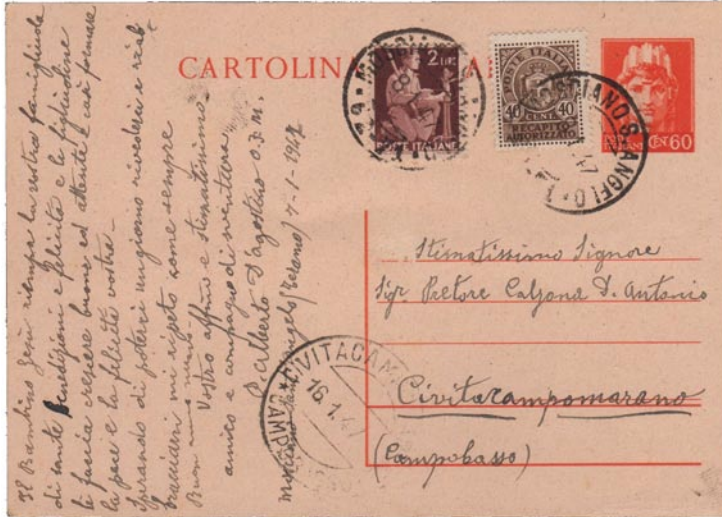 CARTOLINA
2 LIRE
POSTE ITALIANE
POSTE ITALIANE
40 40
CENT.
RECAPITO
AUTORIZZATO
CENT 60
MOSCIANO S. ANGELO
47
Stimatissimo Signore
Sigr. Pretore Calzona D. Antonio
Civitacampomarano
(Campobasso)
CIVITACAM
16.1.47
CAMPO
Il Bambino Gesù riempa la vostra famigliuola
di sante benedizioni e felicità e le figliuoline
le faccia crescere buone ed attente e così formare
la pace e la felicità vostra -
Sperando di potervi un giorno rivedere e riab
bracciarvi mi ripeto come sempre
Vostro affmo e stimatissimo
amico e compagno di sventura
P. Alberto D'Agostino O.F.M.
Mosciano Sant'Angelo (Teramo) 7-1-1947
Buon